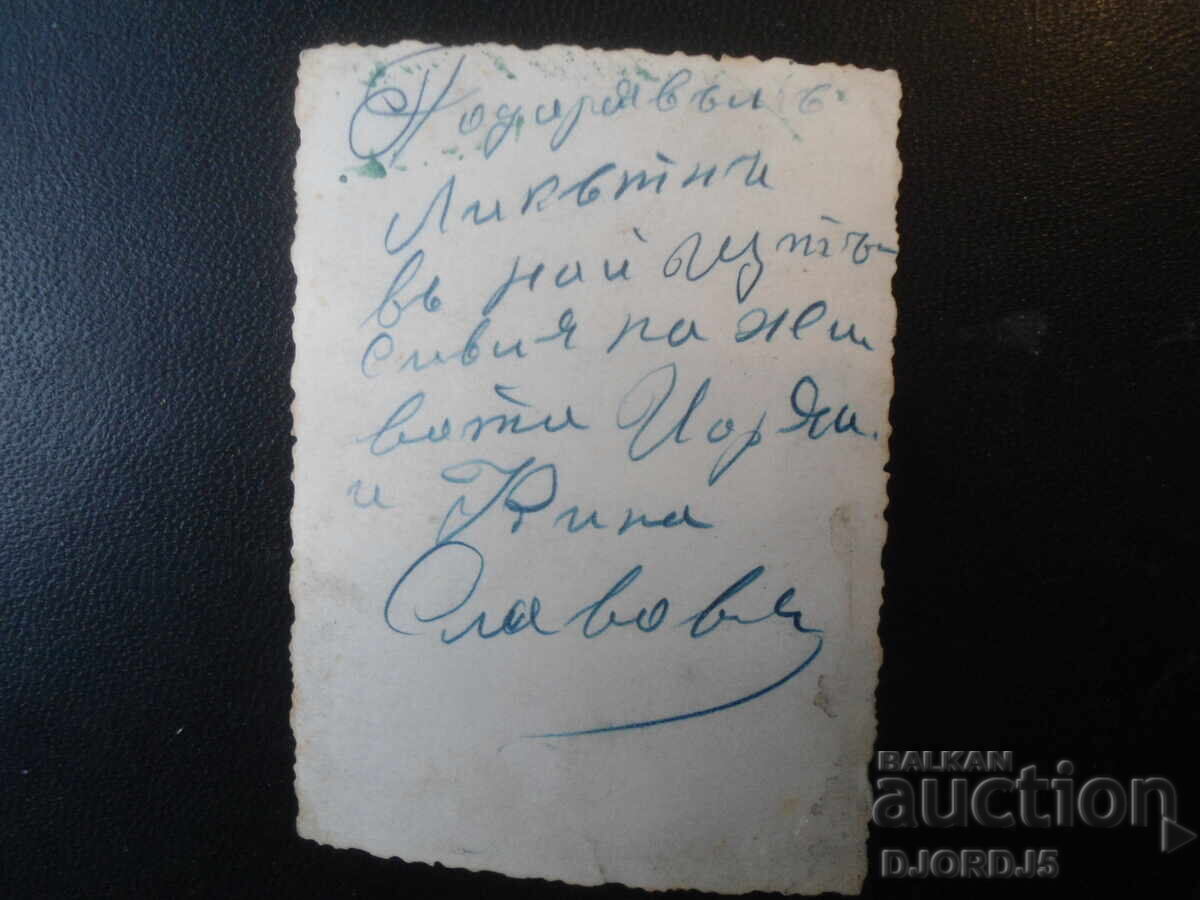 Подарявълъ
Ликътни
въ най
сивия на жи
вота Иордан.
и Кина
Славови
BALKAN
auction
DJORDJ5